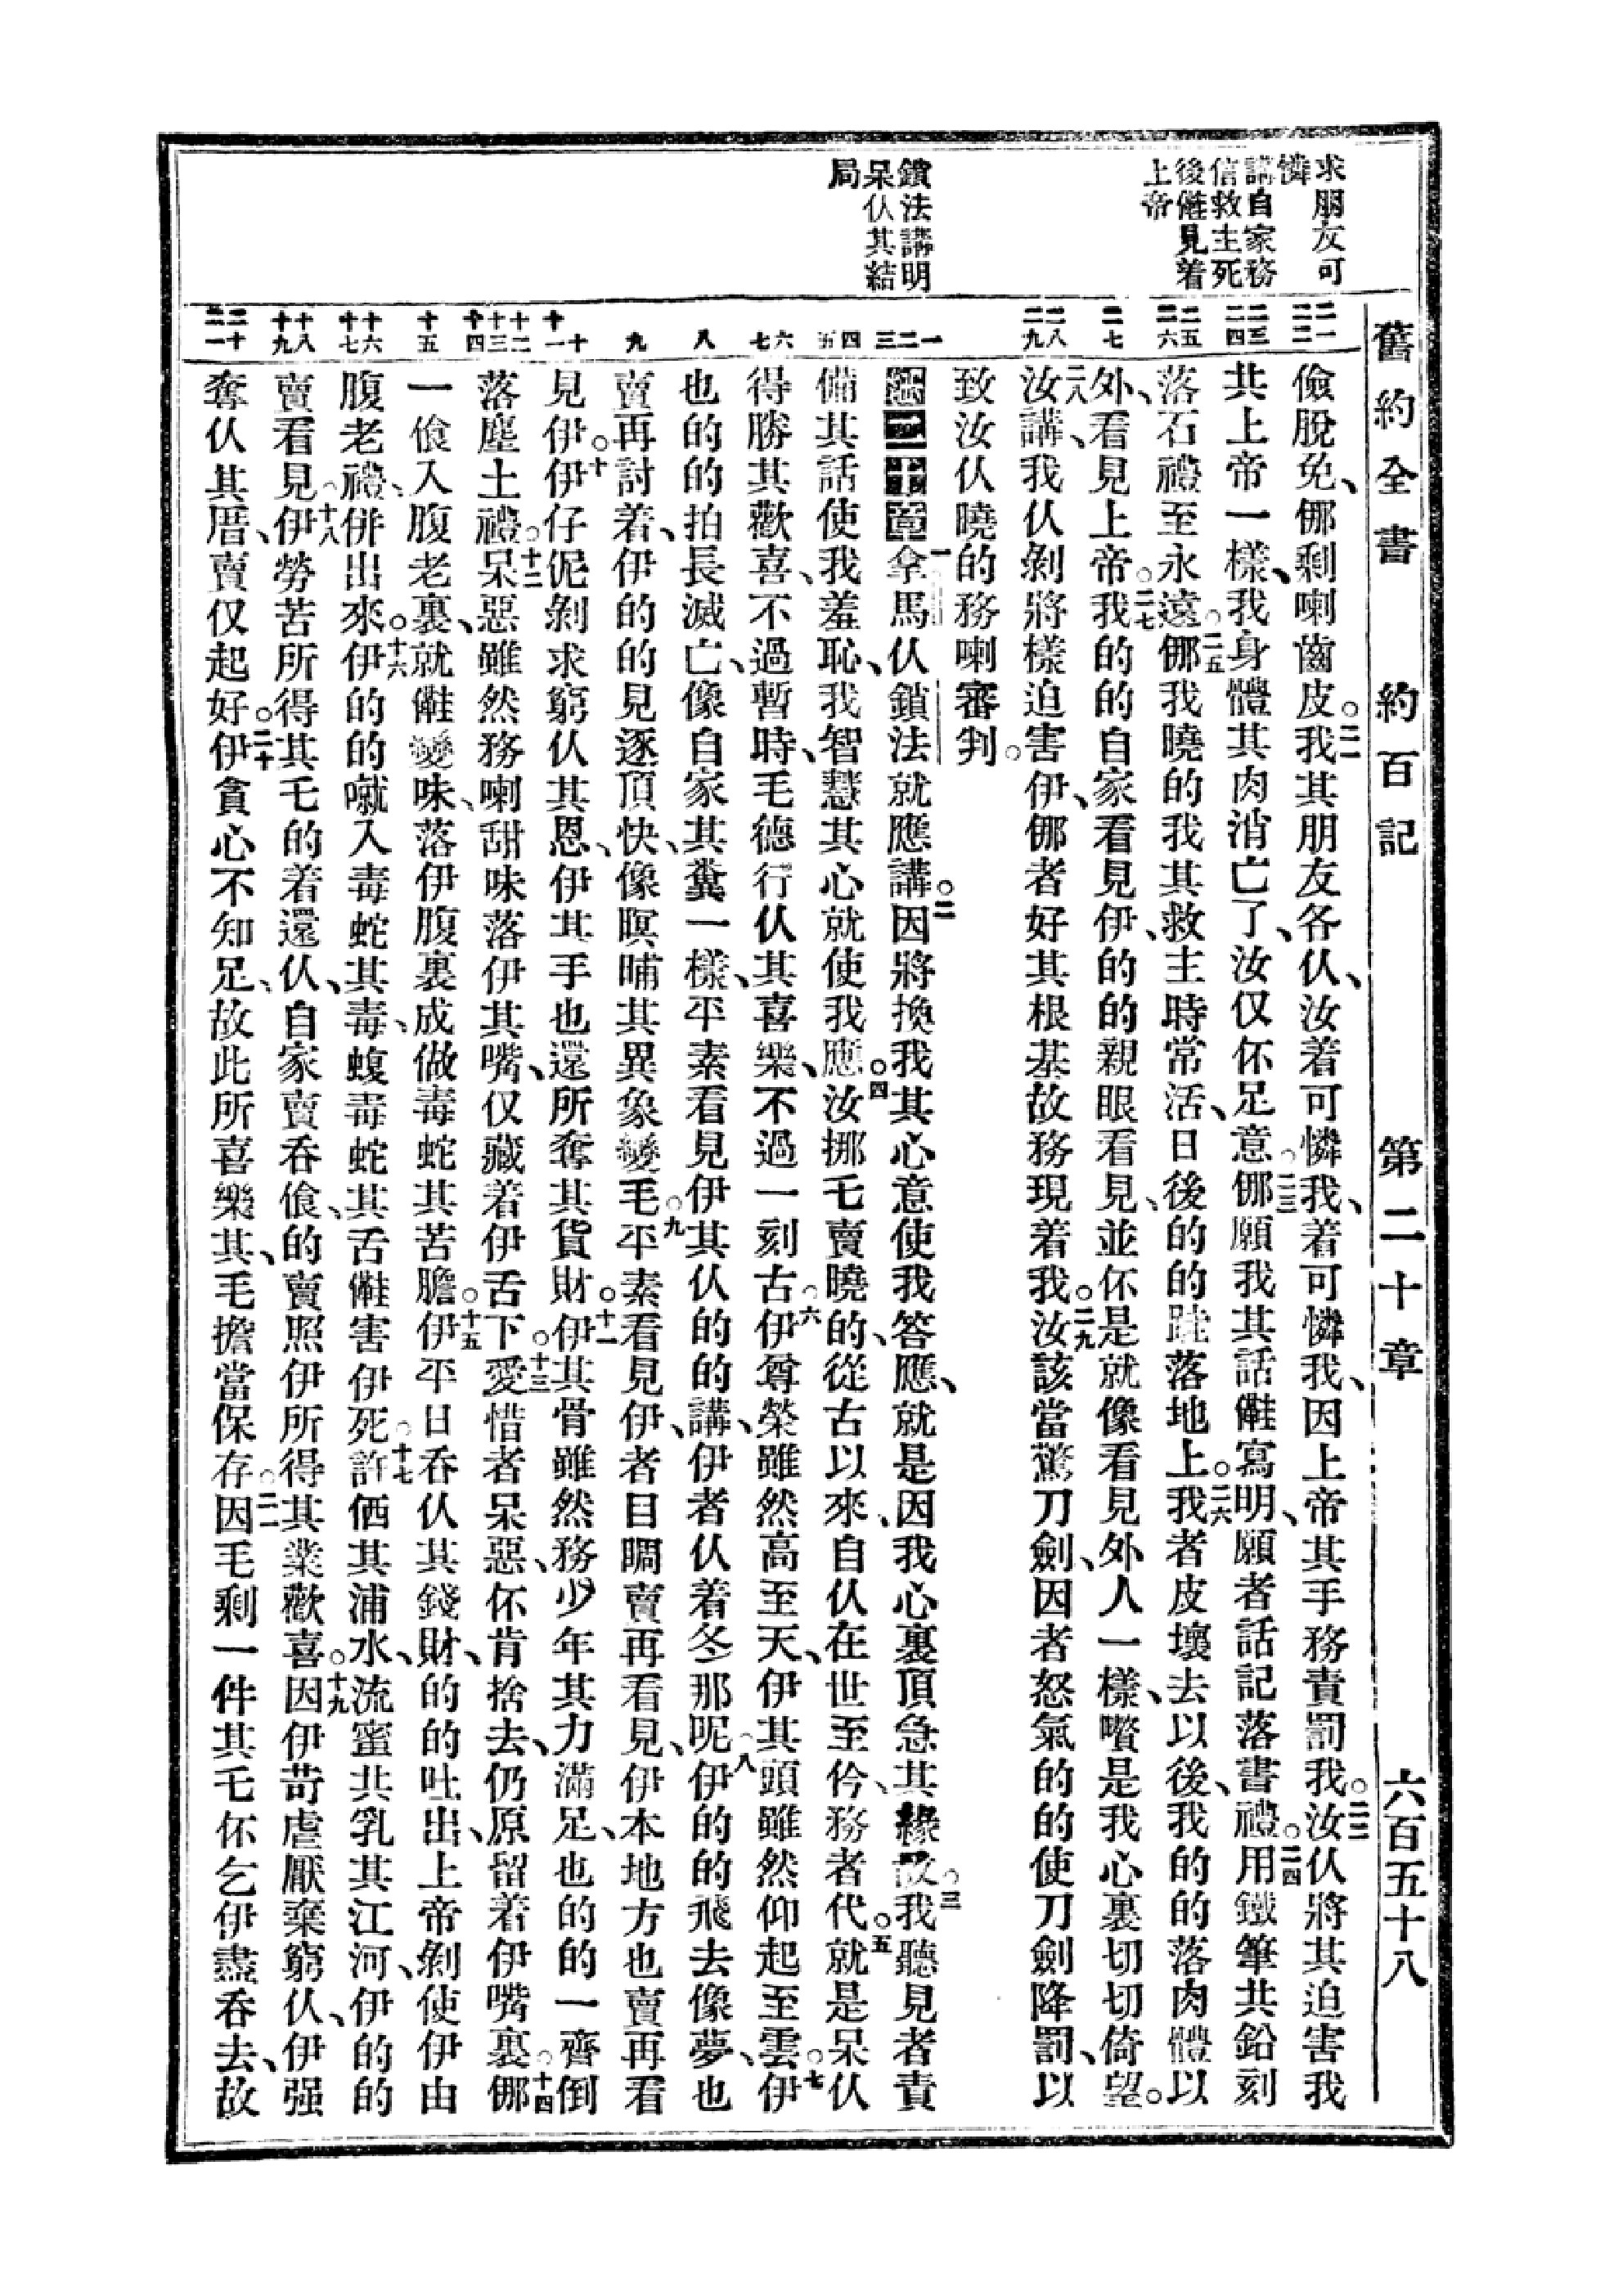 舊約全書 約百記 第二十章 六百五十八
求朋友可
憐
講自家務
信救主死
後儺見着
上帝
鎖法講明
呆仈其結
局
儉脫免、㑚剩喇齒皮。二一我其朋友各仈、汝着可憐我、着可憐我、因上帝其手務責罰我。二二汝仈將其迫害我
共上帝一樣、我身體其肉消亡了、汝仅伓足意。二三㑚願我其話𡅏寫明、願者話記落書禮。二四用鐵筆共鉛刻
落石禮至永遠。二五㑚我曉的我其救主時常活、日後的的踛落地上。二六我者皮壞去以後、我的的落肉體以
外、看見上帝。二七我的的自家看見伊、的的親眼看見、並伓是就像看見外人一樣、嚽是我心裏切切倚望。
二八汝講、我仈剝將樣迫害伊、㑚者好其根基故務現着我。二九汝該當驚刀劍、因者怒氣的的使刀劍降罰、以
致汝仈曉的務喇審判。
第二十章 一拿馬仈鎖法就應講。二因將換我其心意使我答應、就是因我心裏頂急其緣故。三我聽見者責
備其話使我羞恥、我智慧其心就使我應。四汝挪乇賣曉的、從古以來、自仈在世至仱、務者代。五就是呆仈
得勝其歡喜、不過暫時、毛德行仈其喜樂、不過一刻古。六伊尊榮雖然高至天、伊其頭雖然仰起至雲。七伊
也的的拍長滅亡、像自家其糞一樣、平素看見伊其仈的的講、伊者仈着冬那呢。八伊的的飛去像夢、也
賣再討着、伊的的見逐頂快、像暝晡其異象變毛。九平素看見伊、者目睭賣再看見、伊本地方也賣再看
見伊。十伊仔伲剝求窮仈其恩、伊其手也還所奪其貨財。十一伊其骨雖然務少年其力滿足、也的的一齊倒
落塵土禮。十二呆惡雖然務喇甜味落伊其嘴、仅藏着伊舌下。十三愛惜者呆惡、伓肯捨去、仍原留着伊嘴裏。十四㑚
一飡入腹老裏、就𡅏變味、落伊腹裏成做毒蛇其苦膽。十五伊平日吞仈其錢財、的的吐出、上帝剝使伊由
腹老禮、併出來。十六伊的的噈入毒蛇其毒、蝮毒蛇其舌𡅏害伊死。十七許価其浦水、流蜜共乳其江河、伊的的
賣看見。十八伊勞苦所得其乇的着還仈、自家賣吞飡、的賣照伊所得其業歡喜。十九因伊苛虐厭棄窮仈、伊强
奪仈其厝、賣仅起好。二十伊貪心不知足、故此所喜樂其、毛擔當保存。二一因毛剩一件其乇伓乞伊盡吞去、故